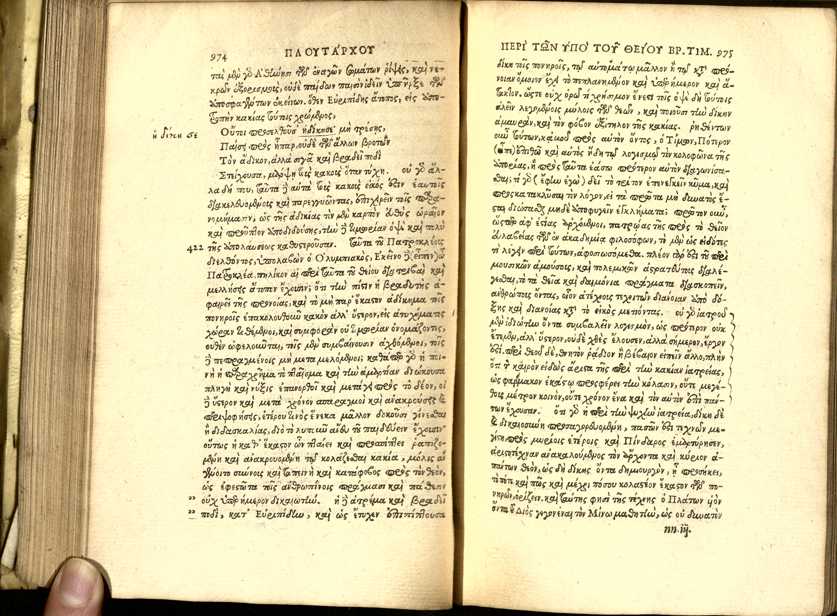 974 ΠΛΟΥΤΑΡΧΟΥ
ται μὲν γὸ Ἀθήνησι τῶν ἐναγῶν σωμάτων ῥίψεις, καὶ νε-
κρῶν ἐξορισμοὺς, οὐδὲ παίδων παισὶν ἰδεῖν ὑπῆρξε τῶν
ἀποσφαγέντων ἐκείνων. ὅθεν Εὐριπίδης ἄτοπος, εἰς ἀπο-
τροπὴν κακίας τούτοις χρώμενος,
ἡ δίκη σε
Οὔτοι προσελθοῦσ' ἠδίκησε μὴ τρέσῃς,
Παίσει πρὸς ἧπαρ, οὐδὲ τῶν ἄλλων βροτῶν
Τὸν ἄδικον, ἀλλὰ σῖγα καὶ βραδεῖ ποδὶ
Στείχουσα, μάρψει τοὺς κακοὺς ὅταν τύχῃ. οὐ γὸ ἄλ-
λα δή που, ταῦτα δὲ αὐτὰ τοὺς κακοὺς εἰκὸς ἐστὶν ἑαυτοῖς
διακελευομένους καὶ παρεγγυῶντας, ἐπιχειρεῖν τοῖς παρα-
νομήμασιν, ὡς τῆς ἀδικίας τὸν μὲν καρπὸν εὐθὺς ὡραῖον
καὶ προὖπτον ἀποδιδούσης, τὴν δὲ τιμωρίαν ὀψὲ καὶ πολὺ
422 τῆς ἀπολαύσεως καθυστεροῦσαν. ταῦτα τοῦ Πατροκλέους
διελθόντος, ὑπολαβὼν ὁ Ὀλυμπιακὸς, Ἐκεῖνο δὲ εἶπεν ὦ
Πατροκλέα, πηλίκον αἱ περὶ ταῦτα τοῦ θείου διατριβαὶ καὶ
μελλήσεις ἄτοπον ἔχουσιν; ὅτι τὴν πίστιν ἡ βραδυτὴς ἀ-
φαιρεῖ τῆς προνοίας, καὶ τὸ μὴ παρ' ἕκαστον ἀδίκημα τοῖς
πονηροῖς ἐπακολουθοῦν κακὸν ἀλλ' ὕστερον, εἰς ἀτυχήματος
χώραν τιθέμενοι, καὶ συμφορὰν οὐ τιμωρίαν ὀνομάζοντες,
οὐθὲν ὠφελοῦνται, τοῖς μὲν συμβαίνουσιν ἀχθόμενοι, τοῖς
δὲ πεπραγμένοις μὴ μεταμελόμενοι. καθάπερ γὸ ἡ πλη-
γὴ ἡ παραχρῆμα τὸ πταῖσμα καὶ τὴν ἁμαρτίαν διώκουσα
πληγὴ καὶ νύξις ἐπανορθοῖ καὶ μετάγει πρὸς τὸ δέον, οἱ
δὲ ὕστερον καὶ μετὰ χρόνον σπαραγμοὶ καὶ ἀνακρούσεις καὶ
περιψοφήσεις, ἑτέρου τινὸς ἕνεκα μᾶλλον δοκοῦσι γίνεσθαι
ἢ διδασκαλίας, διὸ τὸ λυποῦν ἄνευ τοῦ παιδεύειν ἔχουσιν
οὕτως ἡ καθ' ἕκαστον ὧν πταίει καὶ προσπίπτει ῥαπιζο-
μένη καὶ ἀνακρουομένη τῷ κολάζεσθαι κακία, μόλις ἂν
γένοιτο σύννους καὶ ταπεινὴ καὶ κατάφοβος πρὸς τὸν θεὸν,
ὡς ἐφεστῶτα τοῖς ἀνθρωπίνοις πράγμασι καὶ πάθεσιν
οὐχ ὑπερήμερον δικαιωτήν. ἡ δὲ ἀτρέμα καὶ βραδεῖ
ποδὶ, κατ' Εὐριπίδην, καὶ ὡς ἔτυχεν ἐπιπίπτουσα
ΠΕΡΙ ΤΩΝ ΥΠΟ ΤΟΥ ΘΕΙΟΥ ΒΡ. ΤΙΜ. 975
δίκη τοῖς πονηροῖς, τῷ αὐτομάτῳ μᾶλλον ἢ τῷ κατὰ πρό-
νοιαν ὅμοιον ἔχει τὸ πεπλανημένον καὶ ὑπερήμερον καὶ ἄ-
τακτον. ὥστε οὐχ ὁρῶ τί χρήσιμον ἔνεστι τοῖς ὀψὲ δὴ τούτοις
ἀλεῖν λεγομένοις μύλοις τῶν θεῶν, καὶ ποιοῦσι τὴν δίκην
ἀμαυρὰν, καὶ τὸν φόβον ἐξίτηλον τῆς κακίας. ῥηθέντων
οὖν τούτων, κἀμοῦ πρὸς αὑτὸν ὄντος, ὁ Τίμων, Πότερον
(εἶπεν) ἐπιθῶ καὶ αὐτὸς ἤδη τῷ λογισμῷ τὸν κολοφῶνα τῆς
ἀπορίας, ἢ πρὸς ταῦτα ἐάσω πρότερον αὐτὸν διαγωνίσα-
σθαι; τί γὸ (ἔφην ἐγὼ) δεῖ τὸ τρίτον ἐπενεγκεῖν κῦμα, καὶ
προσκατακλύσαι τὸν λόγον, εἰ τὰ πρῶτα μὴ δυνατὸς ἔ-
σται διώσασθαι μηδὲ ἀποφυγεῖν ἐγκλήματα; πρῶτον οὖν,
ὥσπερ ἀφ' ἑστίας ἀρχόμενοι, πατρῴας τῆς πρὸς τὸ θεῖον
εὐλαβείας τῶν ἐν ἀκαδημίᾳ φιλοσόφων, τὸ μὲν ὡς εἰδότες
τι λέγειν περὶ τούτων, ἀφοσιωσόμεθα. πλέον γὸ ἐστὶ τοῦ περὶ
μουσικῶν ἀμούσους, καὶ πολεμικῶν ἀστρατεύτους διαλέ-
γεσθαι, τὸ τὰ θεῖα καὶ δαιμόνια πράγματα διασκοπεῖν,
ἀνθρώπους ὄντας, οἷον ἀτέχνους τεχνιτῶν διάνοιαν ἀπὸ δό-
ξης καὶ ὑπονοίας κατὰ τὸ εἰκὸς μετιόντας. οὐ γὸ ἰατροῦ
μὲν ἰδιώτην ὄντα συμβαλεῖν λογισμὸν, ὡς πρότερον οὐκ
ἔτεμεν, ἀλλ' ὕστερον, οὐδὲ χθὲς ἔλουσεν, ἀλλὰ σήμερον, ἔργον
ἐστὶ, περὶ θεοῦ δὲ, θνητὸν ῥᾴδιον ἢ βέβαιον εἰπεῖν ἄλλο, πλὴν
ὅτι τὸν καιρὸν εἰδὼς ἄριστα τῆς περὶ τὴν κακίαν ἰατρείας,
ὡς φάρμακον ἑκάστῳ προσφέρει τὴν κόλασιν, οὔτε μεγέ-
θους μέτρον κοινὸν, οὔτε χρόνον ἕνα καὶ τὸν αὐτὸν ἐπὶ πάν-
των ἔχουσαν. ὅτι γὸ ἡ περὶ τὴν ψυχὴν ἰατρεία, δίκη δὲ
καὶ δικαιοσύνη προσαγορευομένη, πασῶν ἐστὶ τεχνῶν με-
γίστη πρὸς μυρίοις ἑτέροις καὶ Πίνδαρος ἐμαρτύρησεν,
ἀριστοτέχναν ἀνακαλούμενος τὸν ἄρχοντα καὶ κύριον ἁ-
πάντων θεὸν, ὡς δὴ δίκης ὄντα δημιουργὸν, ᾗ προσήκει,
τὸ πότε καὶ πῶς καὶ μέχρι πόσου κολαστέον ἕκαστον τῶν πο-
νηρῶν, ὁρίζειν. καὶ ταύτης φησὶ τῆς τέχνης ὁ Πλάτων υἱὸν
ὄντα τοῦ Διὸς γεγονέναι τὸν Μίνω μαθητὴν, ὡς οὐ δυνατὸν
nn.iij.